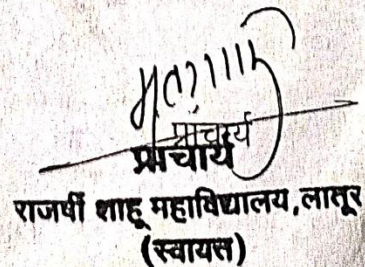 प्राचार्य
प्राचार्य
राजर्षी शाहू महाविद्यालय, लातूर
(स्वायत्त)